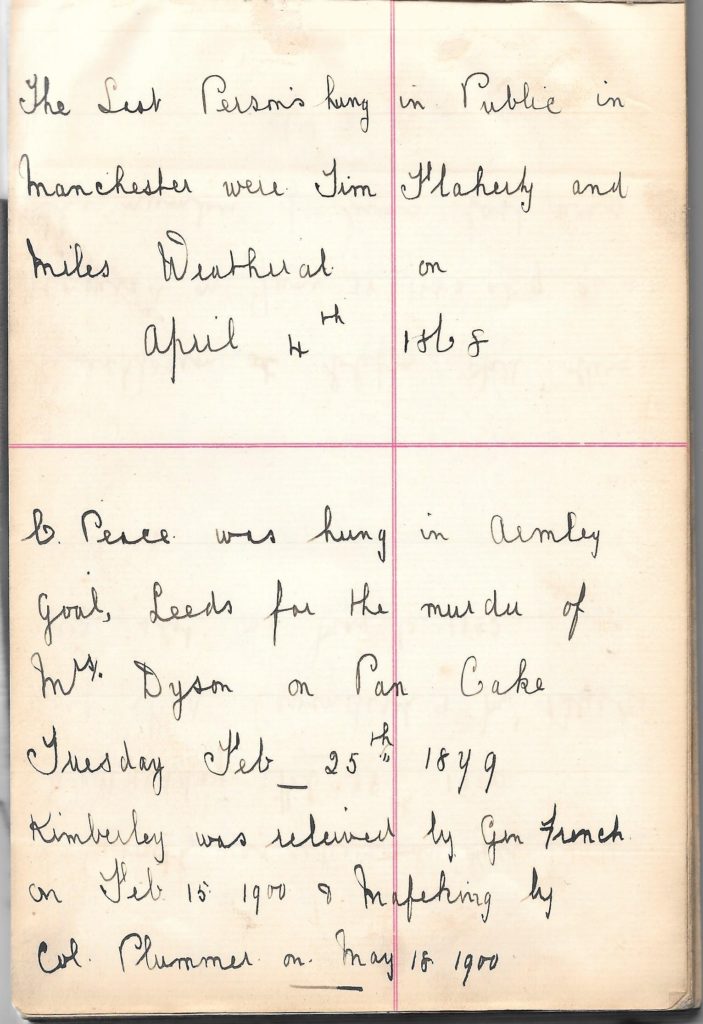 The Last Person's hung in Public in
Manchester were Tim Flaherty and
Miles Weatheral on
April 4th 1868
C. Peace was hung in Armley
Goal, Leeds for the murder of
Mrs. Dyson on Pan Cake
Tuesday Feb _ 25th 1879
Kimberley was releived by Gen French
on Feb 15 1900 & Mafeking by
Col. Plummer on. May 18 1900